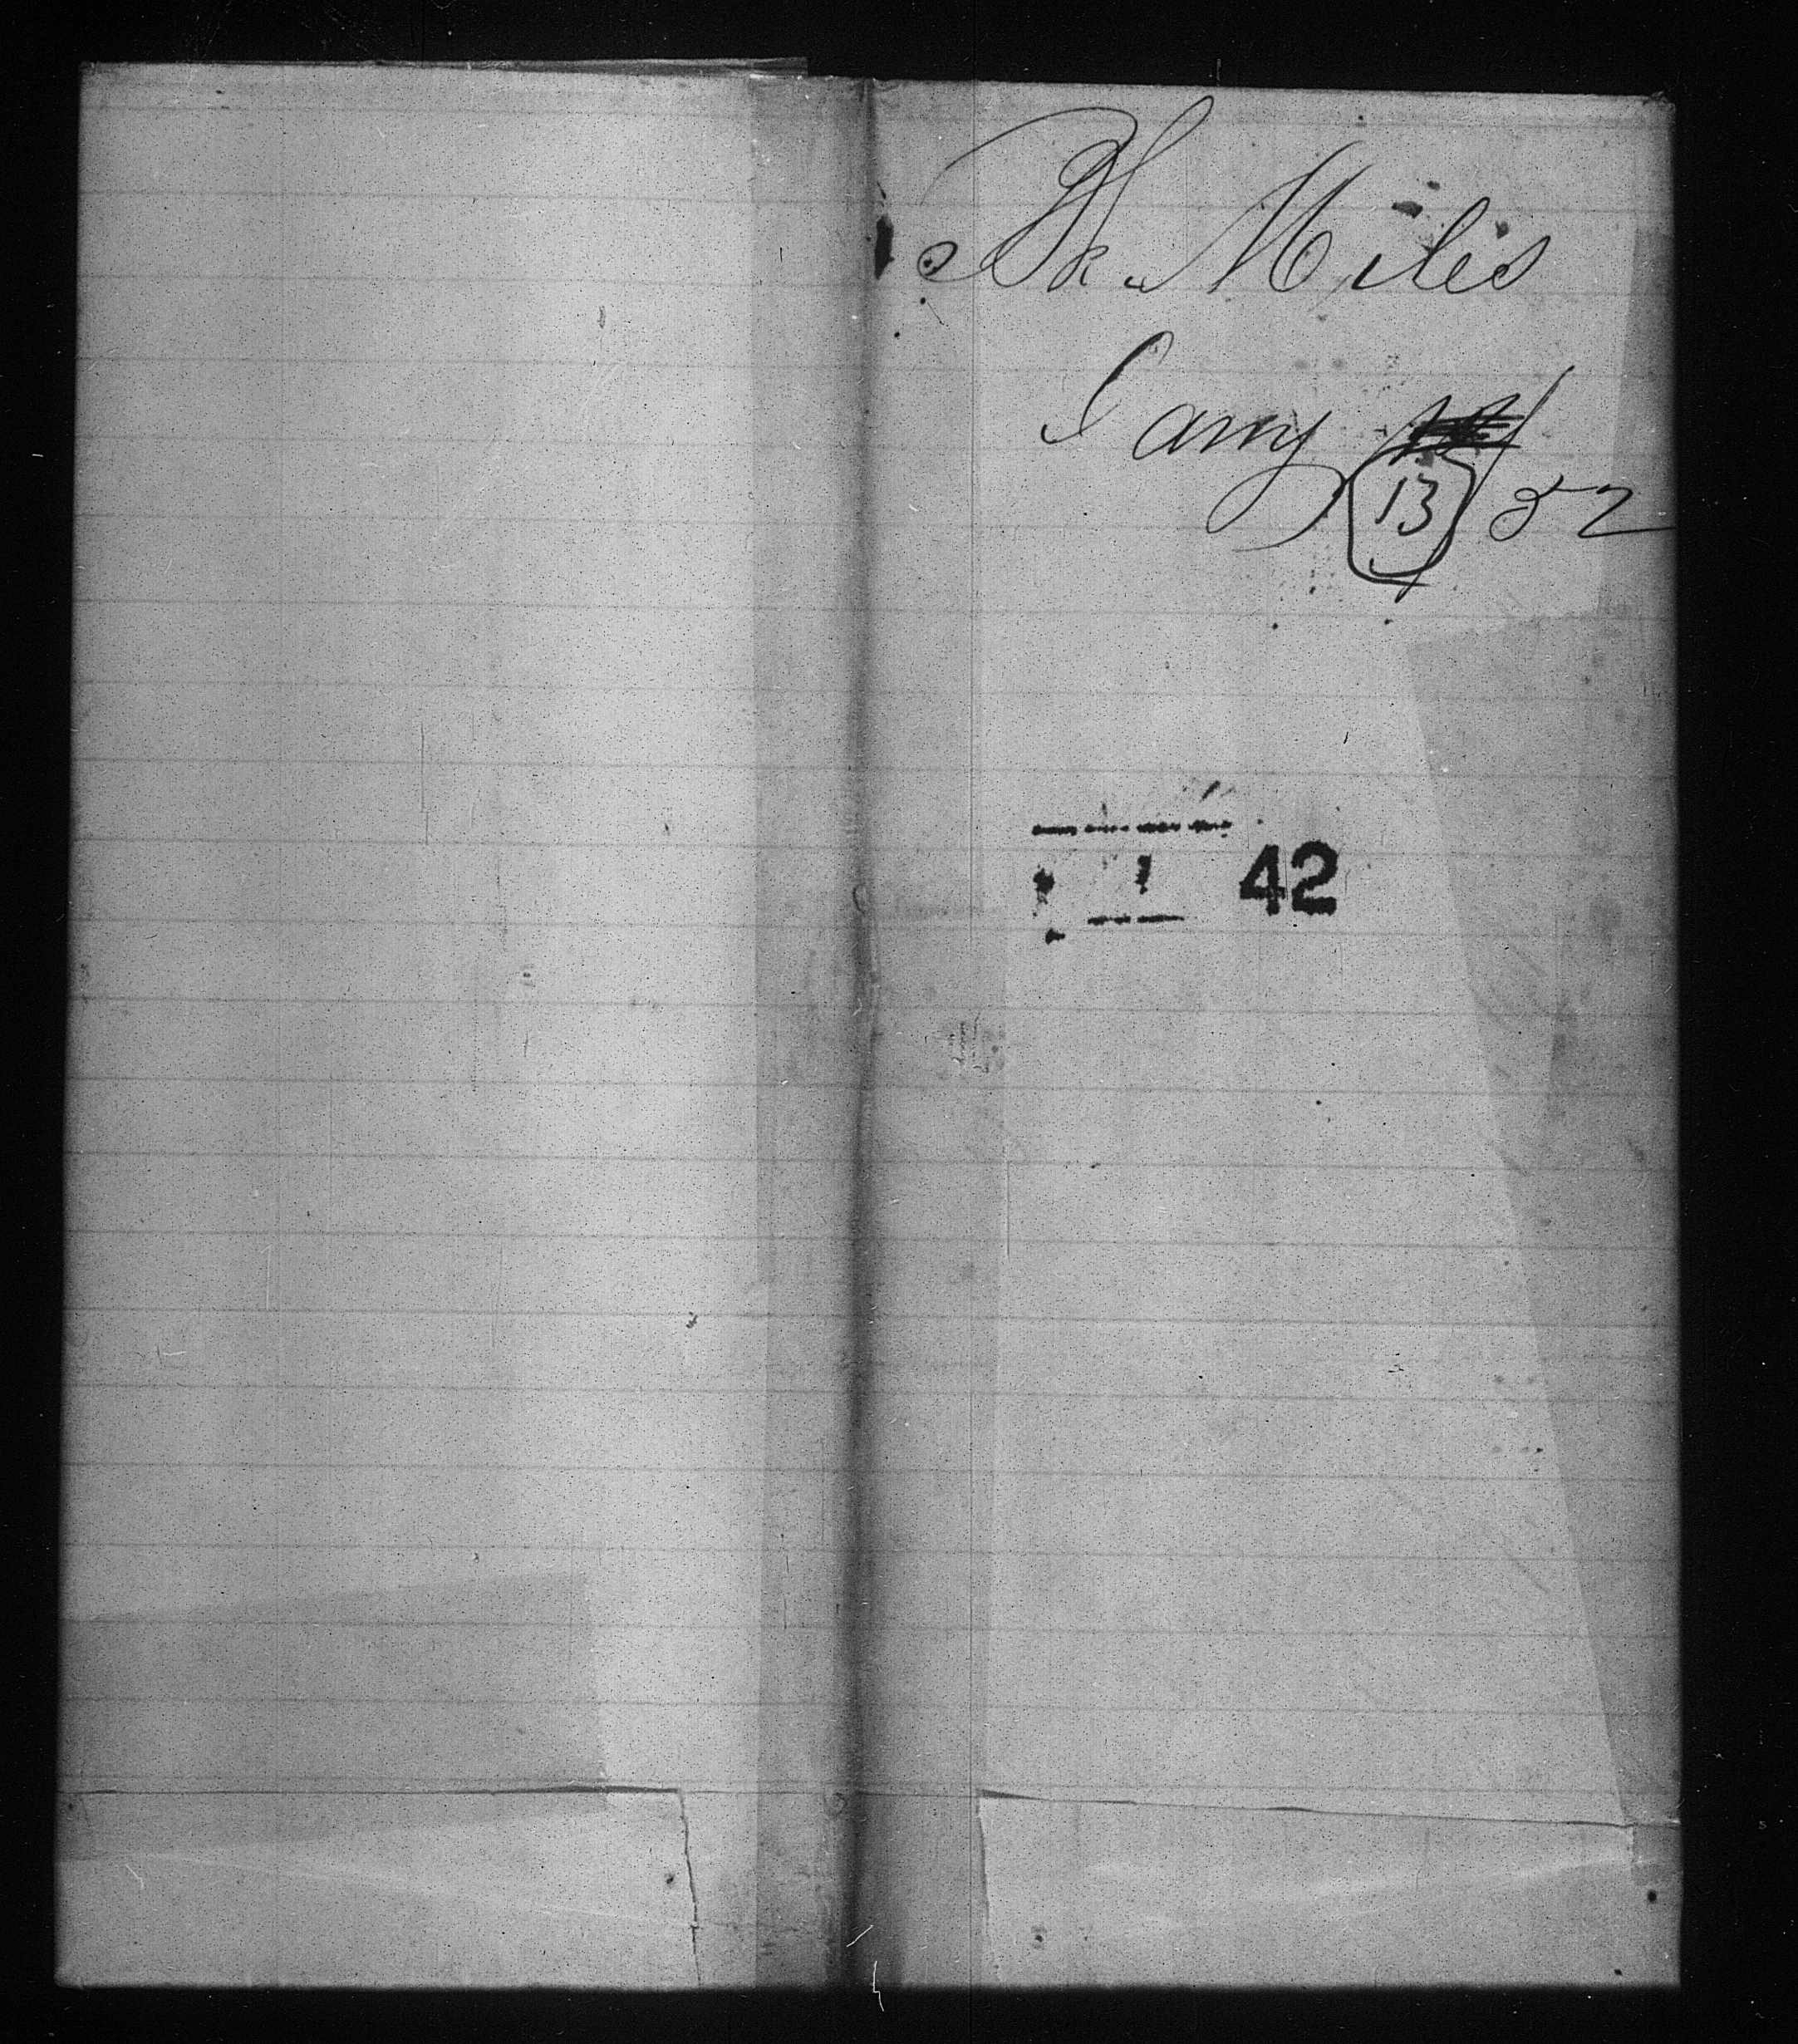 Bk. Miles
Jany
13/52
42